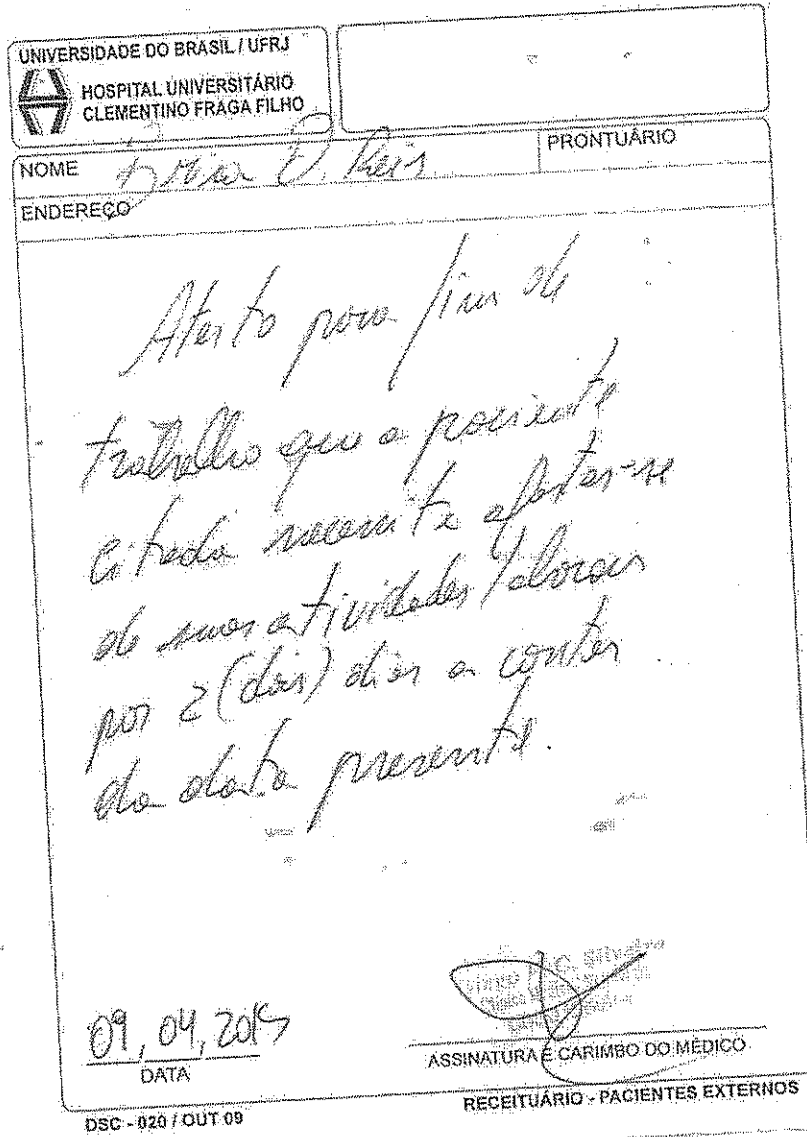 UNIVERSIDADE DO BRASIL / UFRJ
HOSPITAL UNIVERSITÁRIO
CLEMENTINO FRAGA FILHO
NOME Reis
PRONTUÁRIO
ENDEREÇO
Atesto para fins de
trabalho que a paciente
citada necessita afastar-se
de suas atividades laborais
por 2 (dois) dias a contar
da data presente.
09, 04, 2015
DATA
ASSINATURA E CARIMBO DO MÉDICO
DSC - 020 / OUT 09
RECEITUÁRIO - PACIENTES EXTERNOS